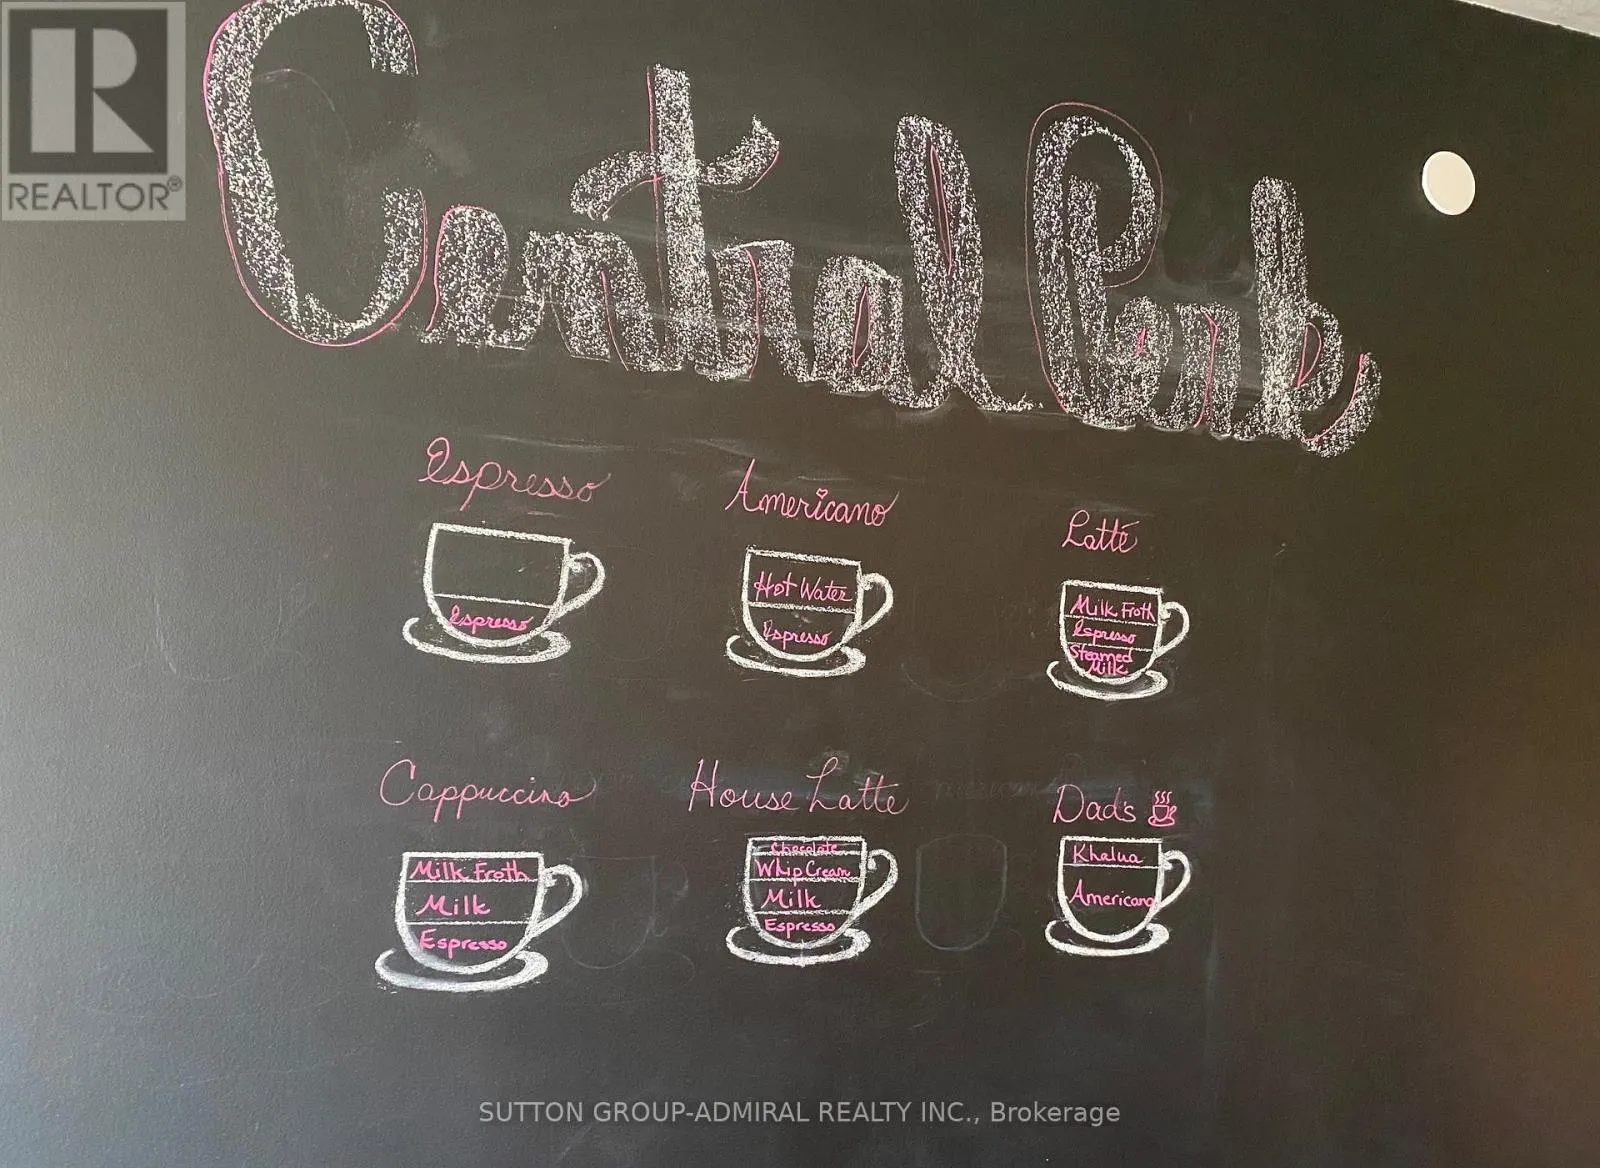 R
REALTOR®
Central Perk
Espresso
Americano
Latté
Espresso
Hot Water
Espresso
Milk Froth
Espresso
Steamed
Milk
Cappuccino
House Latte
Dad's
Milk Froth
Milk
Espresso
Chocolate
Whip Cream
Milk
Espresso
Khalua
Americano
SUTTON GROUP-ADMIRAL REALTY INC., Brokerage